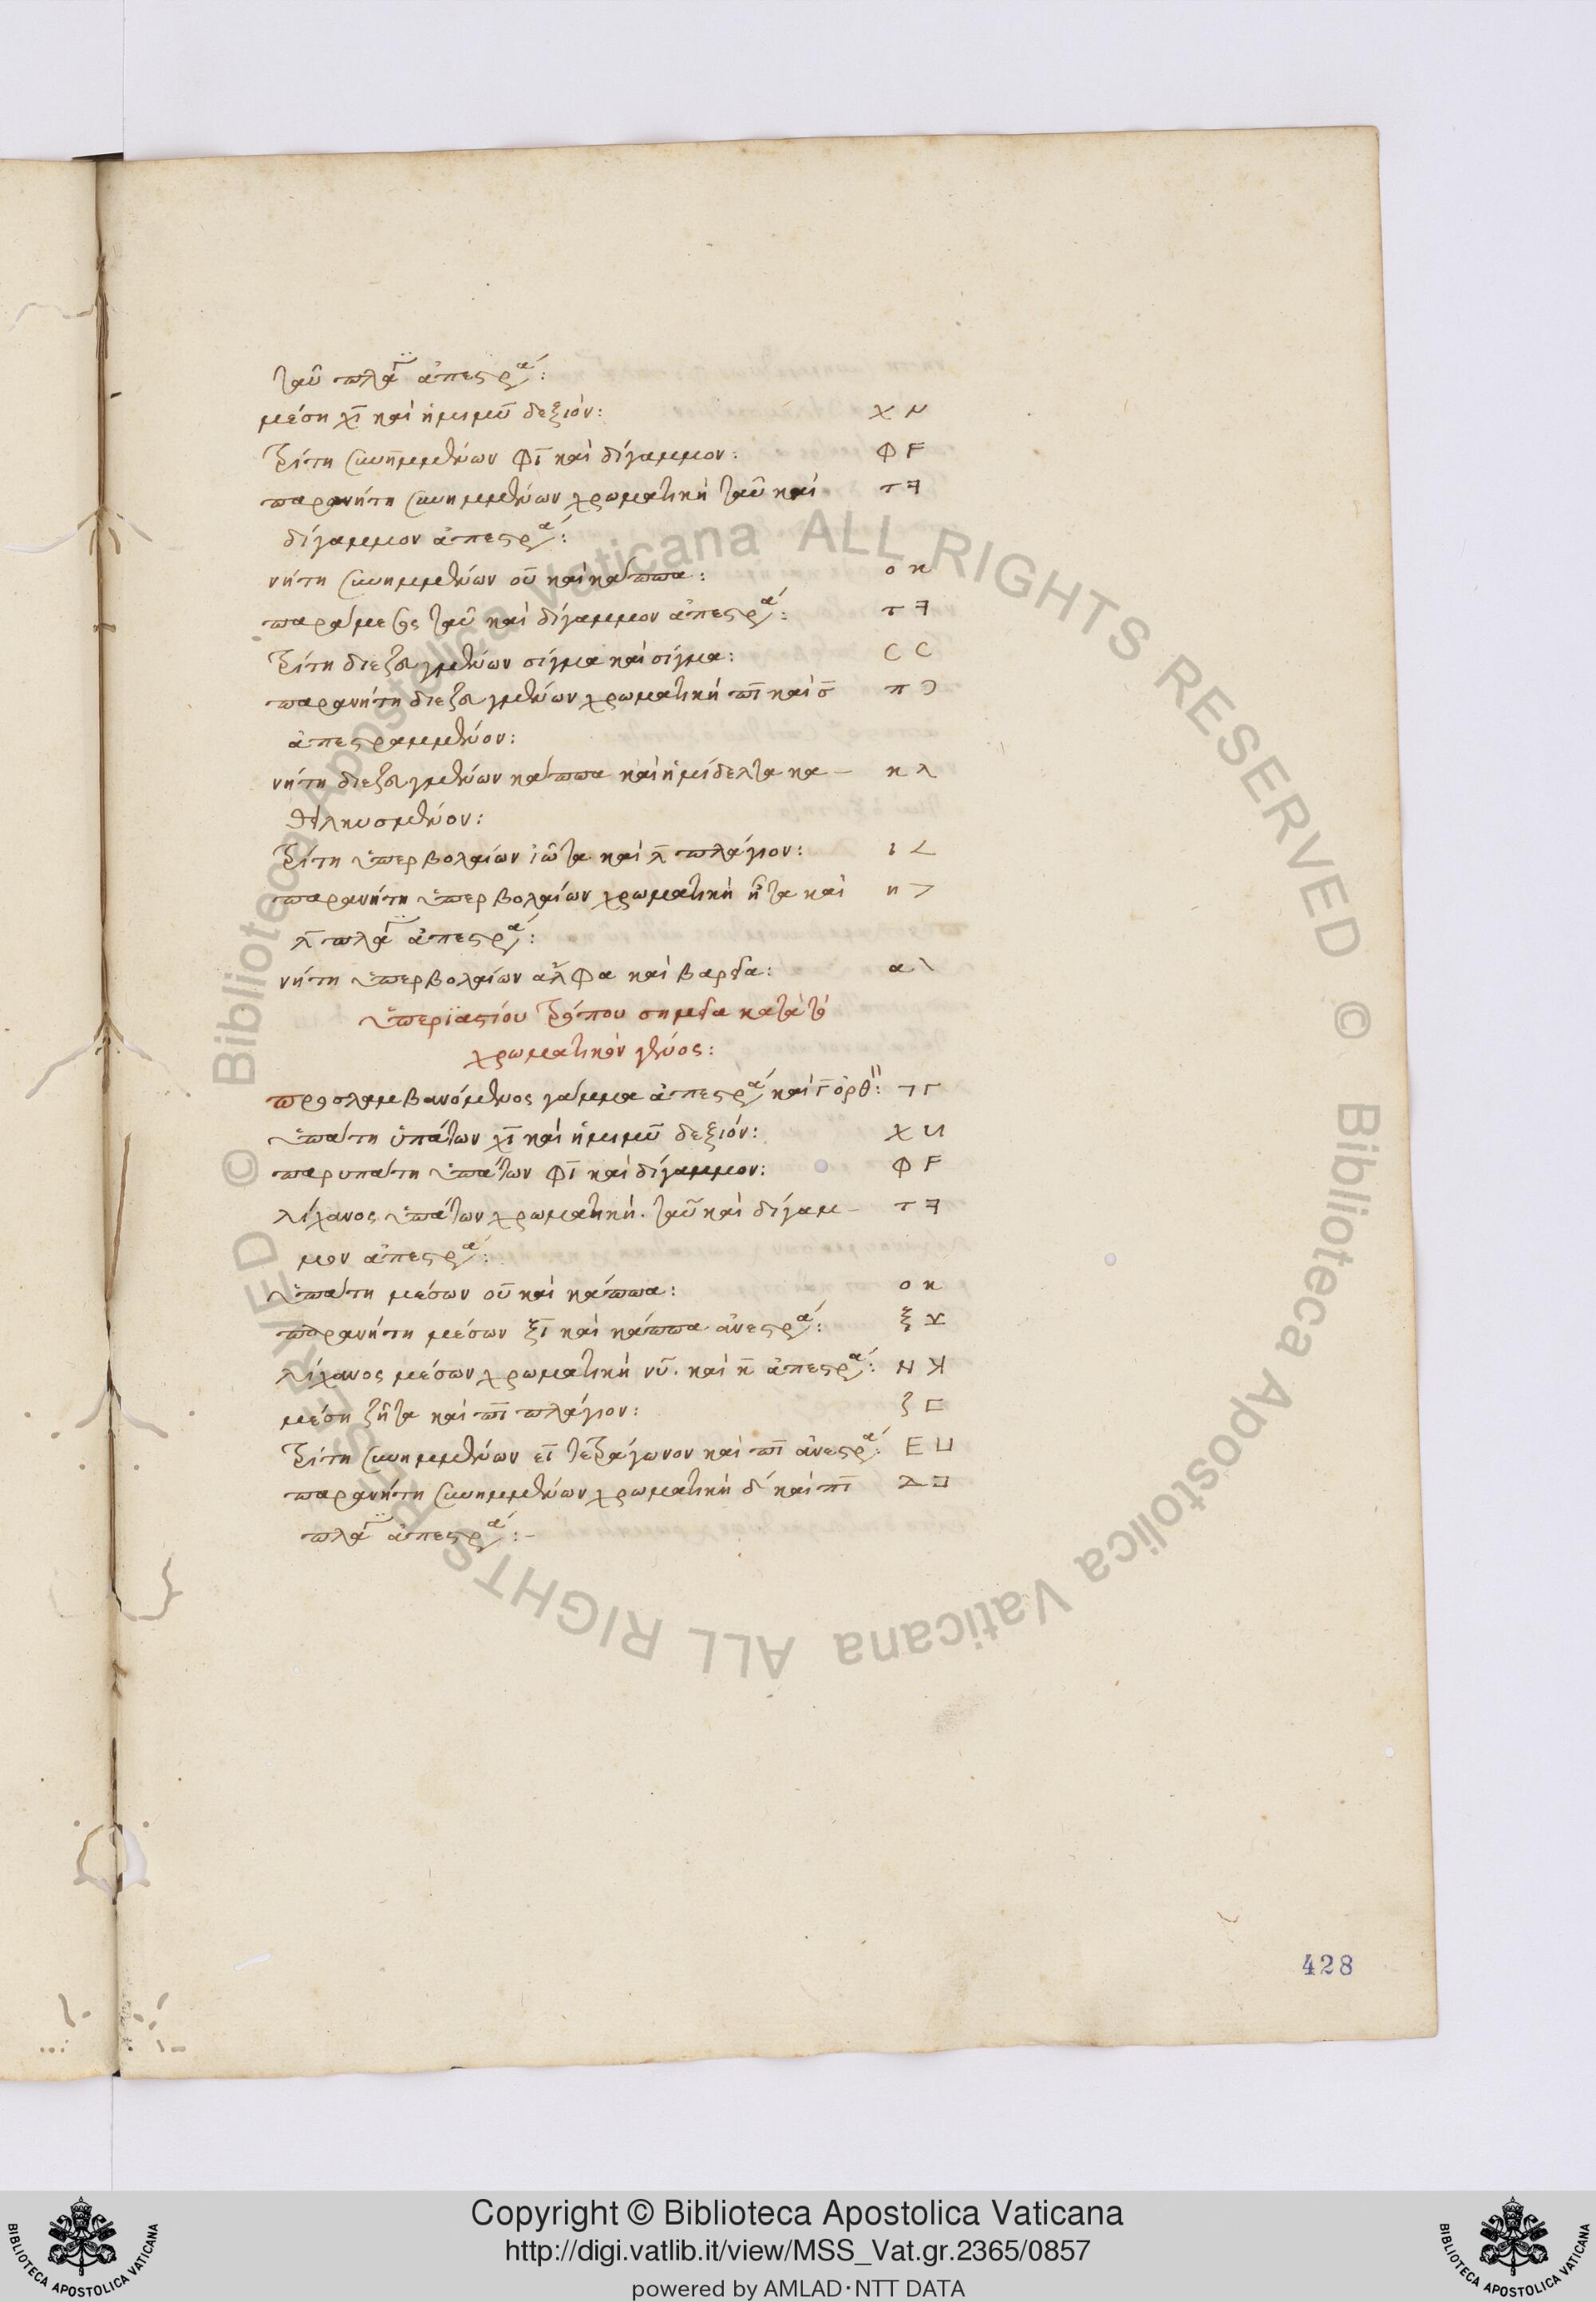 ταῦ πλάγ ἀπεστρα:
μέση χῖ καὶ ἡμιμῦ δεξιόν: χ
τρίτη συνημμένων φῖ καὶ δίγαμμον: Φ F
παρανήτη συνημμένων χρωματικὴ ταῦ καὶ τ ꟻ
δίγαμμον ἀπεστρα:
νήτη συνημμένων οὖ καὶ κάππα: ο κ
παράμεσος ταῦ καὶ δίγαμμον ἀπεστρα: τ ꟻ
τρίτη διεζευγμένων σίγμα καὶ σίγμα: C C
παρανήτη διεζευγμένων χρωματικὴ πῖ καὶ σ̄ π Ɔ
ἀπεστραμμένον:
νήτη διεζευγμένων κάππα καὶ ἡμίδελτα κα– κ λ
θειλκυσμένον:
τρίτη ὑπερβολαίων ἰῶτα καὶ λ̄ πλάγιον: ι <
παρανήτη ὑπερβολαίων χρωματικὴ ἦτα καὶ η >
λ̄ πλάγ ἀπεστρα:
νήτη ὑπερβολαίων ἄλφα καὶ βαρεῖα: α \
ὑπεριαστίου τρόπου σημεῖα κατὰ τὸ
χρωματικὸν γένος:
προσλαμβανόμενος γάμμα ἀπεστρα καὶ Γ̄ ὀρθ: ⅂ Γ
ὑπάτη ὑπάτων χῖ καὶ ἡμιμῦ δεξιόν: χ
παρυπάτη ὑπάτων φῖ καὶ δίγαμμον: Φ F
λίχανος ὑπάτων χρωματική. ταῦ καὶ δίγαμ– τ ꟻ
μον ἀπεστρα:
ὑπάτη μέσων οὖ καὶ κάππα: ο κ
παρανήτη μέσων ξῖ καὶ κάππα ἀνεστρα: ξ
λίχανος μέσων χρωματικὴ νῦ. καὶ κ̄ ἀπεστρα: Ν
μέση ζῆτα καὶ πῖ πλάγιον: ζ ⊏
τρίτη συνημμένων εῖ τετράγωνον καὶ πῖ ἀνεστρα: Ε ⊔
παρανήτη συνημμένων χρωματικὴ δ´ καὶ πῖ Δ ⊐
πλάγ ἀπεστρα:–
428
© Biblioteca Apostolica Vaticana ALL RIGHTS RESERVED © Biblioteca Apostolica Vaticana ALL RIGHTS RESERVED
Copyright © Biblioteca Apostolica Vaticana
http://digi.vatlib.it/view/MSS_Vat.gr.2365/0857
powered by AMLAD·NTT DATA
BIBLIOTECA APOSTOLICA VATICANA
BIBLIOTECA APOSTOLICA VATICANA